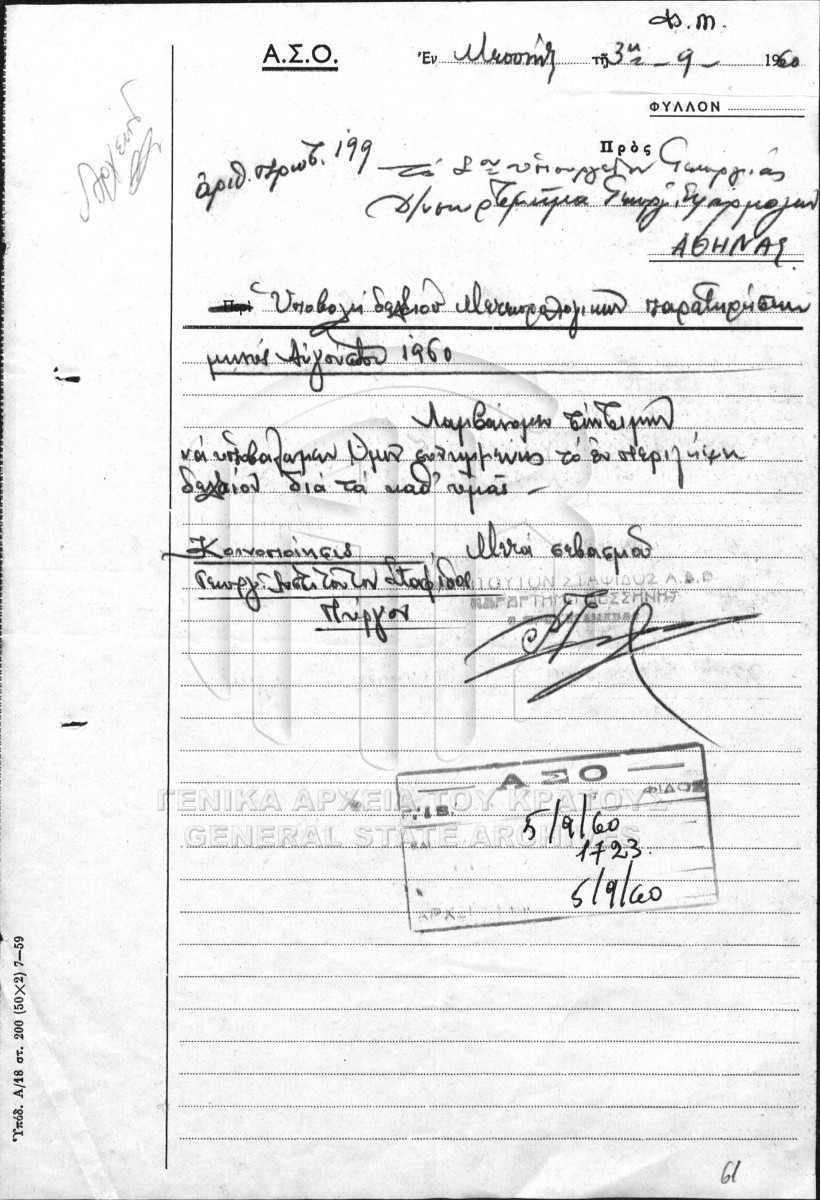 Φ.Π.
Α.Σ.Ο.
Ἐν Μεσσήνῃ τῇ 3η - 9 - 1960
ΦΥΛΛΟΝ
Ἀρχεῖον
Πρὸς
ἀριθ. πρωτ. 199
Τό Σὸν Ὑπουργεῖον Γεωργίας
Δ/νσιν Τμῆμα Γεωργ. Ἐφαρμογῶν
ΑΘΗΝΑΣ
Περὶ Ὑποβολή δελτίου Μετεωρολογικῶν παρατηρήσεων
μηνός Αὐγούστου 1960
Λαμβάνομεν τήν τιμήν
νά ὑποβάλωμεν Ὑμῖν συνημμένως τό ἐν περιλήψει
δελτίον διά τά καθ' ὑμᾶς -
Κοινοποίησις
Μετά σεβασμοῦ
Γεωργ. Ἰνστιτοῦτον Σταφίδος
Πύργον
ΤΟΥΤΟΝ ΣΤΑΦΙΔΟΣ Α.Σ.Ο
ΠΑΡΑΡΤΗΜΑ ΜΕΣΣΗΝΗΣ
ΑΣΟ
ΦΙΔΟΣ
5/9/60
1723.
5/9/60
ΑΡΧ
ΓΕΝΙΚΑ ΑΡΧΕΙΑ ΤΟΥ ΚΡΑΤΟΥΣ
GENERAL STATE ARCHIVES
Ὑπόδ. Α/18 στ. 200 (50×2) 7—59
61